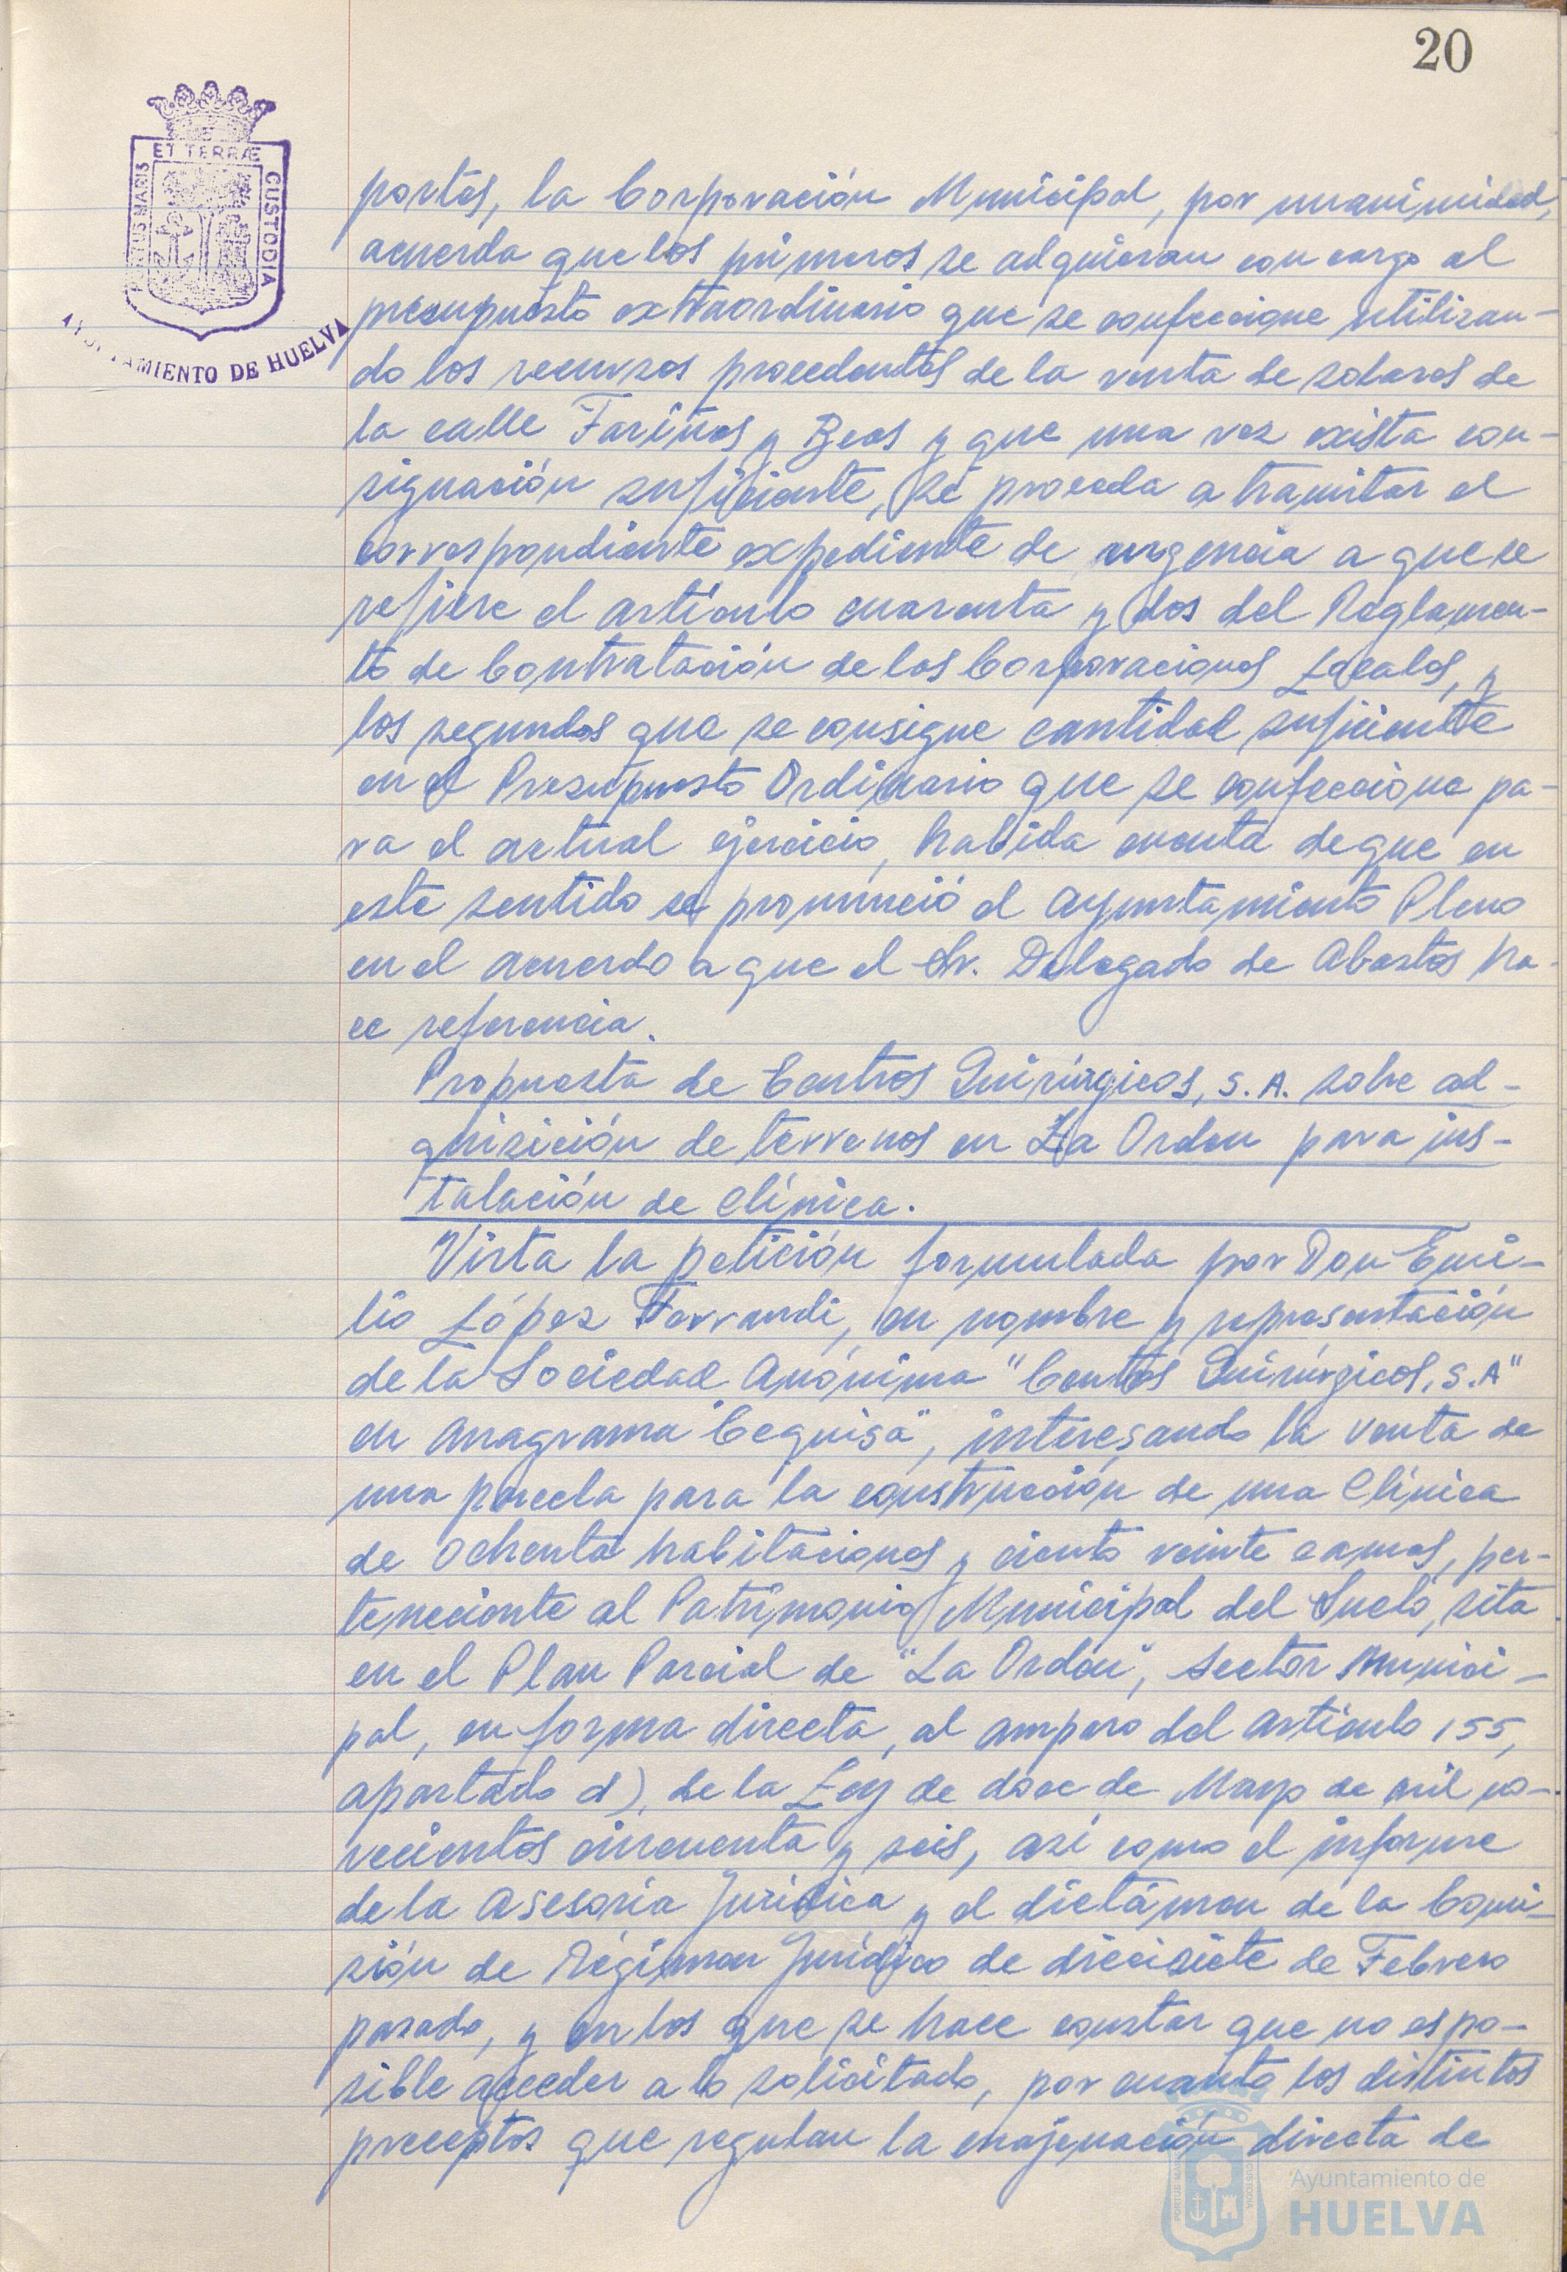 20
ET TERRÆ
PORTUS MARIS
CUSTODIA
AYUNTAMIENTO DE HUELVA
portes, la Corporación Municipal, por unanimidad,
acuerda que los primeros se adquieran con cargo al
presupuesto extraordinario que se confeccione utilizan-
do los recursos procedentes de la venta de solares de
la calle Fariñas y Beas y que una vez exista con-
signación suficiente, se proceda a tramitar el
correspondiente expediente de urgencia a que se
refiere el artículo cuarenta y dos del Reglamen-
to de Contratación de las Corporaciones Locales, y
los segundos que se consigne cantidad suficiente
en el Presupuesto Ordinario que se confeccione pa-
ra el actual ejercicio, habida cuenta de que en
este sentido se pronunció el Ayuntamiento Pleno
en el acuerdo a que el Sr. Delegado de Abastos ha-
ce referencia.
Propuesta de Centros Quirúrgicos, S.A. sobre ad-
quisición de terrenos en La Orden para ins-
talación de Clínica.
Vista la petición formulada por Don Emi-
lio López Ferrandi, en nombre y representación
de la Sociedad Anónima "Centros Quirúrgicos, S.A"
en anagrama "Cequisa", interesando la venta de
una parcela para la construcción de una Clínica
de ochenta habitaciones y ciento veinte camas, per-
teneciente al Patrimonio Municipal del Suelo, sita
en el Plan Parcial de "La Orden", Sector Munici-
pal, en forma directa, al amparo del artículo 155,
apartado d), de la Ley de doce de Mayo de mil no-
vecientos cincuenta y seis, así como el informe
de la Asesoría Jurídica y el dictámen de la Comi-
sión de Régimen Jurídico de diecisiete de Febrero
pasado, y en los que se hace constar que no es po-
sible acceder a lo solicitado, por cuanto los distintos
preceptos que regulan la enajenación directa de
Ayuntamiento de
HUELVA